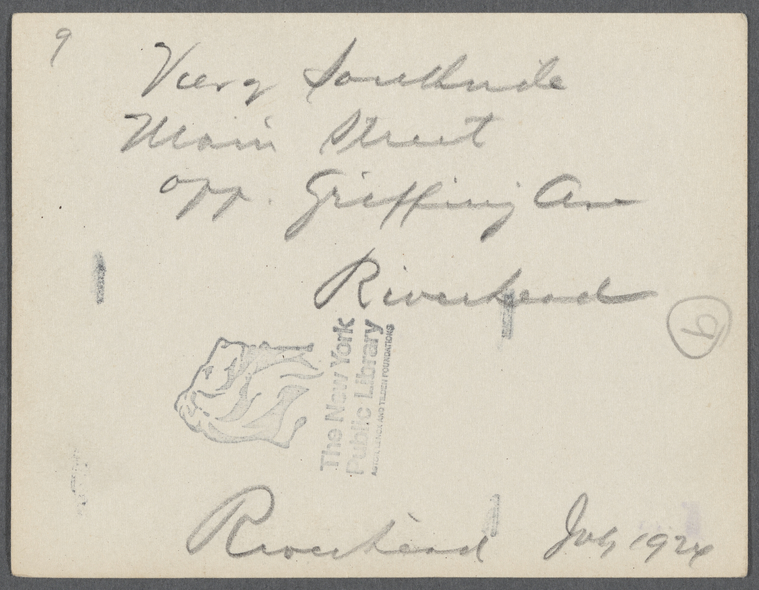 9
View Southside
Main Street
opp. Griffing Av
Riverhead
9
The New York
Public Library
ASTOR, LENOX AND TILDEN FOUNDATIONS
Riverhead July 1924